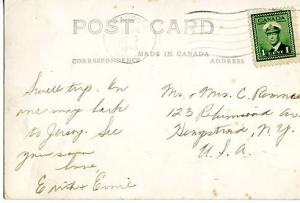 POST CARD
MADE IN CANADA
CORRESPONDENCE
ADDRESS
Swell trip. On
our way back
to Jersey. See
you soon
love,
Enid & Ernie
Mr. & Mrs. C.
123 Richmond Ave
Hempstead, N.Y.
U.S.A.
CANADA
1 CENT 1